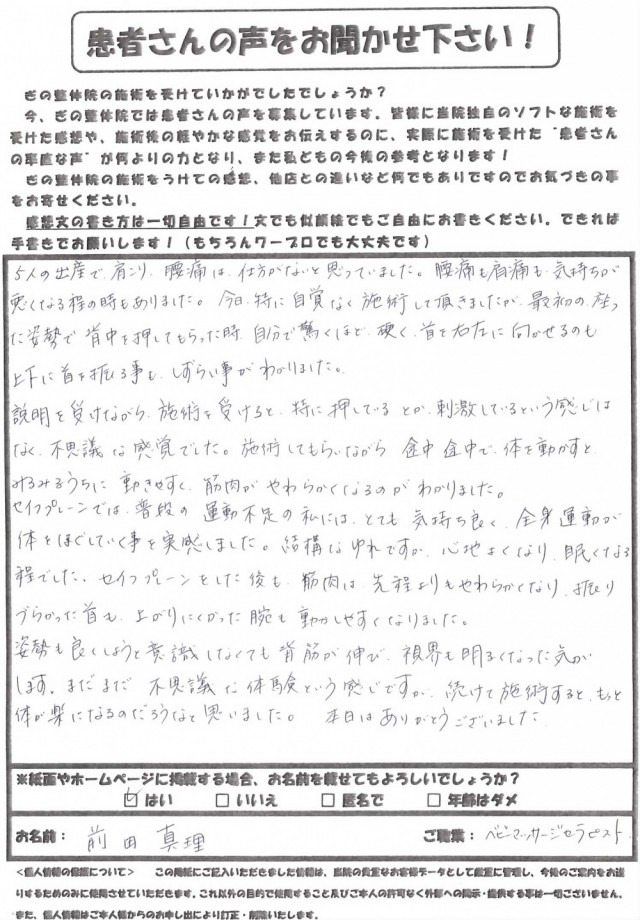 患者さんの声をお聞かせ下さい！
ぎの整体院の施術を受けていかがでしたでしょうか？
今、ぎの整体院では患者さんの声を募集しています。皆様に当院独自のソフトな施術を
受けた感想や、施術後の軽やかな感覚をお伝えするのに、実際に施術を受けた“患者さん
の率直な声”が何よりの力となり、また私どもの今後の参考となります！
ぎの整体院の施術をうけての感想、他店との違いなど何でもありですのでお気づきの事
をお寄せください。
感想文の書き方は一切自由です！文でも似顔絵でもご自由にお書きください。できれば
手書きでお願いします！（もちろんワープロでも大丈夫です）
5人の出産で、肩こり、腰痛は、仕方がないと思っていました。腰痛も肩痛も、気持ちが
悪くなる程の時もありました。今日、特に自覚なく施術して頂きましたが、最初の座っ
た姿勢で背中を押してもらった時、自分で驚くほど、硬く、首を右左に向かせるのも
上下に首を振る事も、しずらい事がわかりました。
説明を受けながら、施術を受けると、特に押しているとか、刺激しているという感じは
なく、不思議な感覚でした。施術してもらいながら途中途中で、体を動かすと、
みるみるうちに動きやすく、筋肉がやわらかくなるのがわかりました。
セイフプレーンでは、普段の運動不足の私には、とても気持ち良く、全身運動が
体をほぐしていく事を実感しました。結構なゆれですが、心地よくなり、眠くなる
程でした。セイフプレーンをした後も、筋肉は、先程よりもやわらかくなり、振り
づらかった首も、上がりにくかった腕も動かしやすくなりました。
姿勢も良くしようと意識しなくても背筋が伸び、視界も明るくなった気が
します。まだまだ不思議な体験という感じですが、続けて施術すると、もっと
体が楽になるのだろうなと思いました。本日はありがとうございました。
※紙面やホームページに掲載する場合、お名前を載せてもよろしいでしょうか？
☑はい　□いいえ　□匿名で　□年齢はダメ
お名前：前田真理　ご職業：ベビーマッサージセラピスト
<個人情報の保護について>　この用紙にご記入いただきました情報は、当院の貴重なお客様データとして厳重に管理し、今後のご案内をお送
りするためのみに使用させていただきます。これ以外の目的で使用すること及びご本人の許可なく外部への開示・提供する事は一切ございません。
また、個人情報はご本人様からのお申し出により訂正・削除いたします。